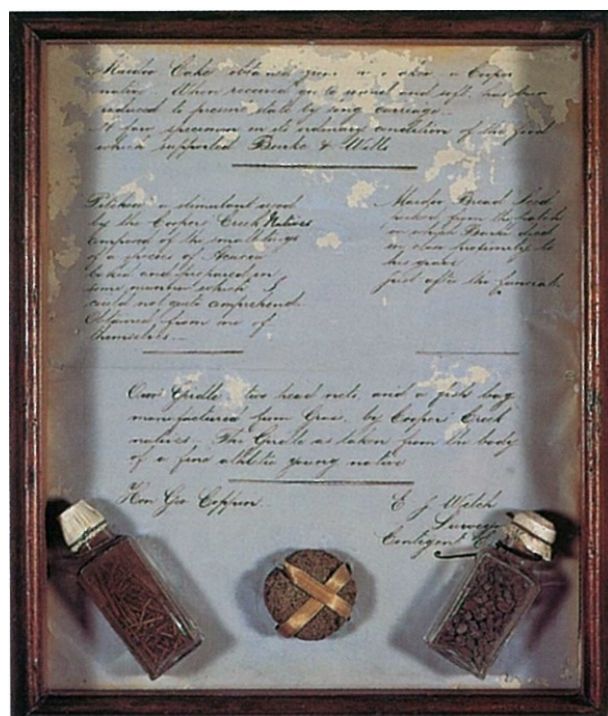 Nardoo Cake obtained from a Cooper
native. When received on to and soft has been
reduced to present state by long carriage.
A fair specimen in its ordinary condition of the food
which supported Burke & Wills
Pitchery a stimulant used
by the Coopers Creek Natives
Composed of the small twigs
of a species of Acacia
baked and prepared in
some manner which I
could not quite comprehend.
Obtained from one of
themselves.
Nardoo Bread Seed
picked from the patch
on which Burke died
in close proximity to
his grave
just after the funeral.
One Girdle two head nets, and a fish bag
manufactured from Grass, by Coopers Creek
natives. The Girdle as taken from the body
of a fine athletic young native
Hon Geo Coppin.
E J Welch
Surveyor
Contingent